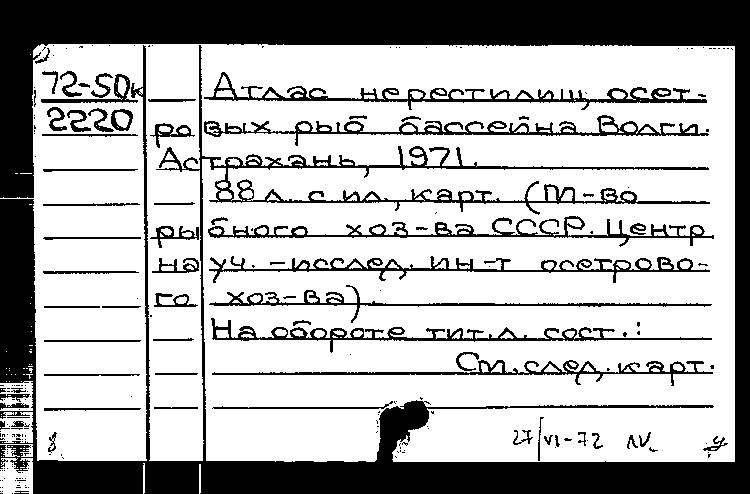 72-50к Атлас нерестилищ осет-
2220 ровых рыб бассейна Волги.
Астрахань, 1971.
88 л. с ил., карт. (М-во
рыбного хоз-ва СССР. Центр
науч.-исслед. ин-т осетрово-
го хоз-ва).
На обороте тит. л. сост.:
См. след. карт.
8 27/VI-72